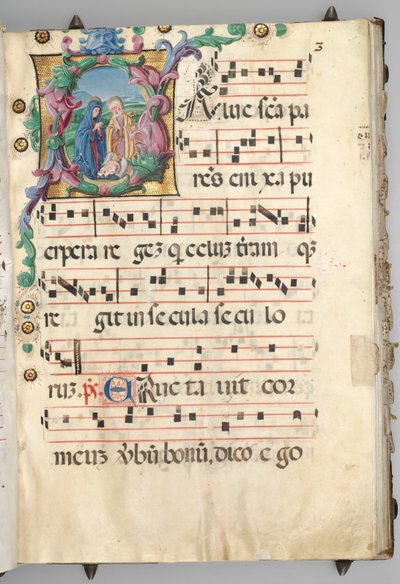 3
SAlue scā pa
rēs eni xa pu
erpera re gez q celuz t̄ram qȝ
re git in se cula se cu lo
ruz. p̄s. ERuc ta uit cor
meuz v̄bū bonū, dico e go